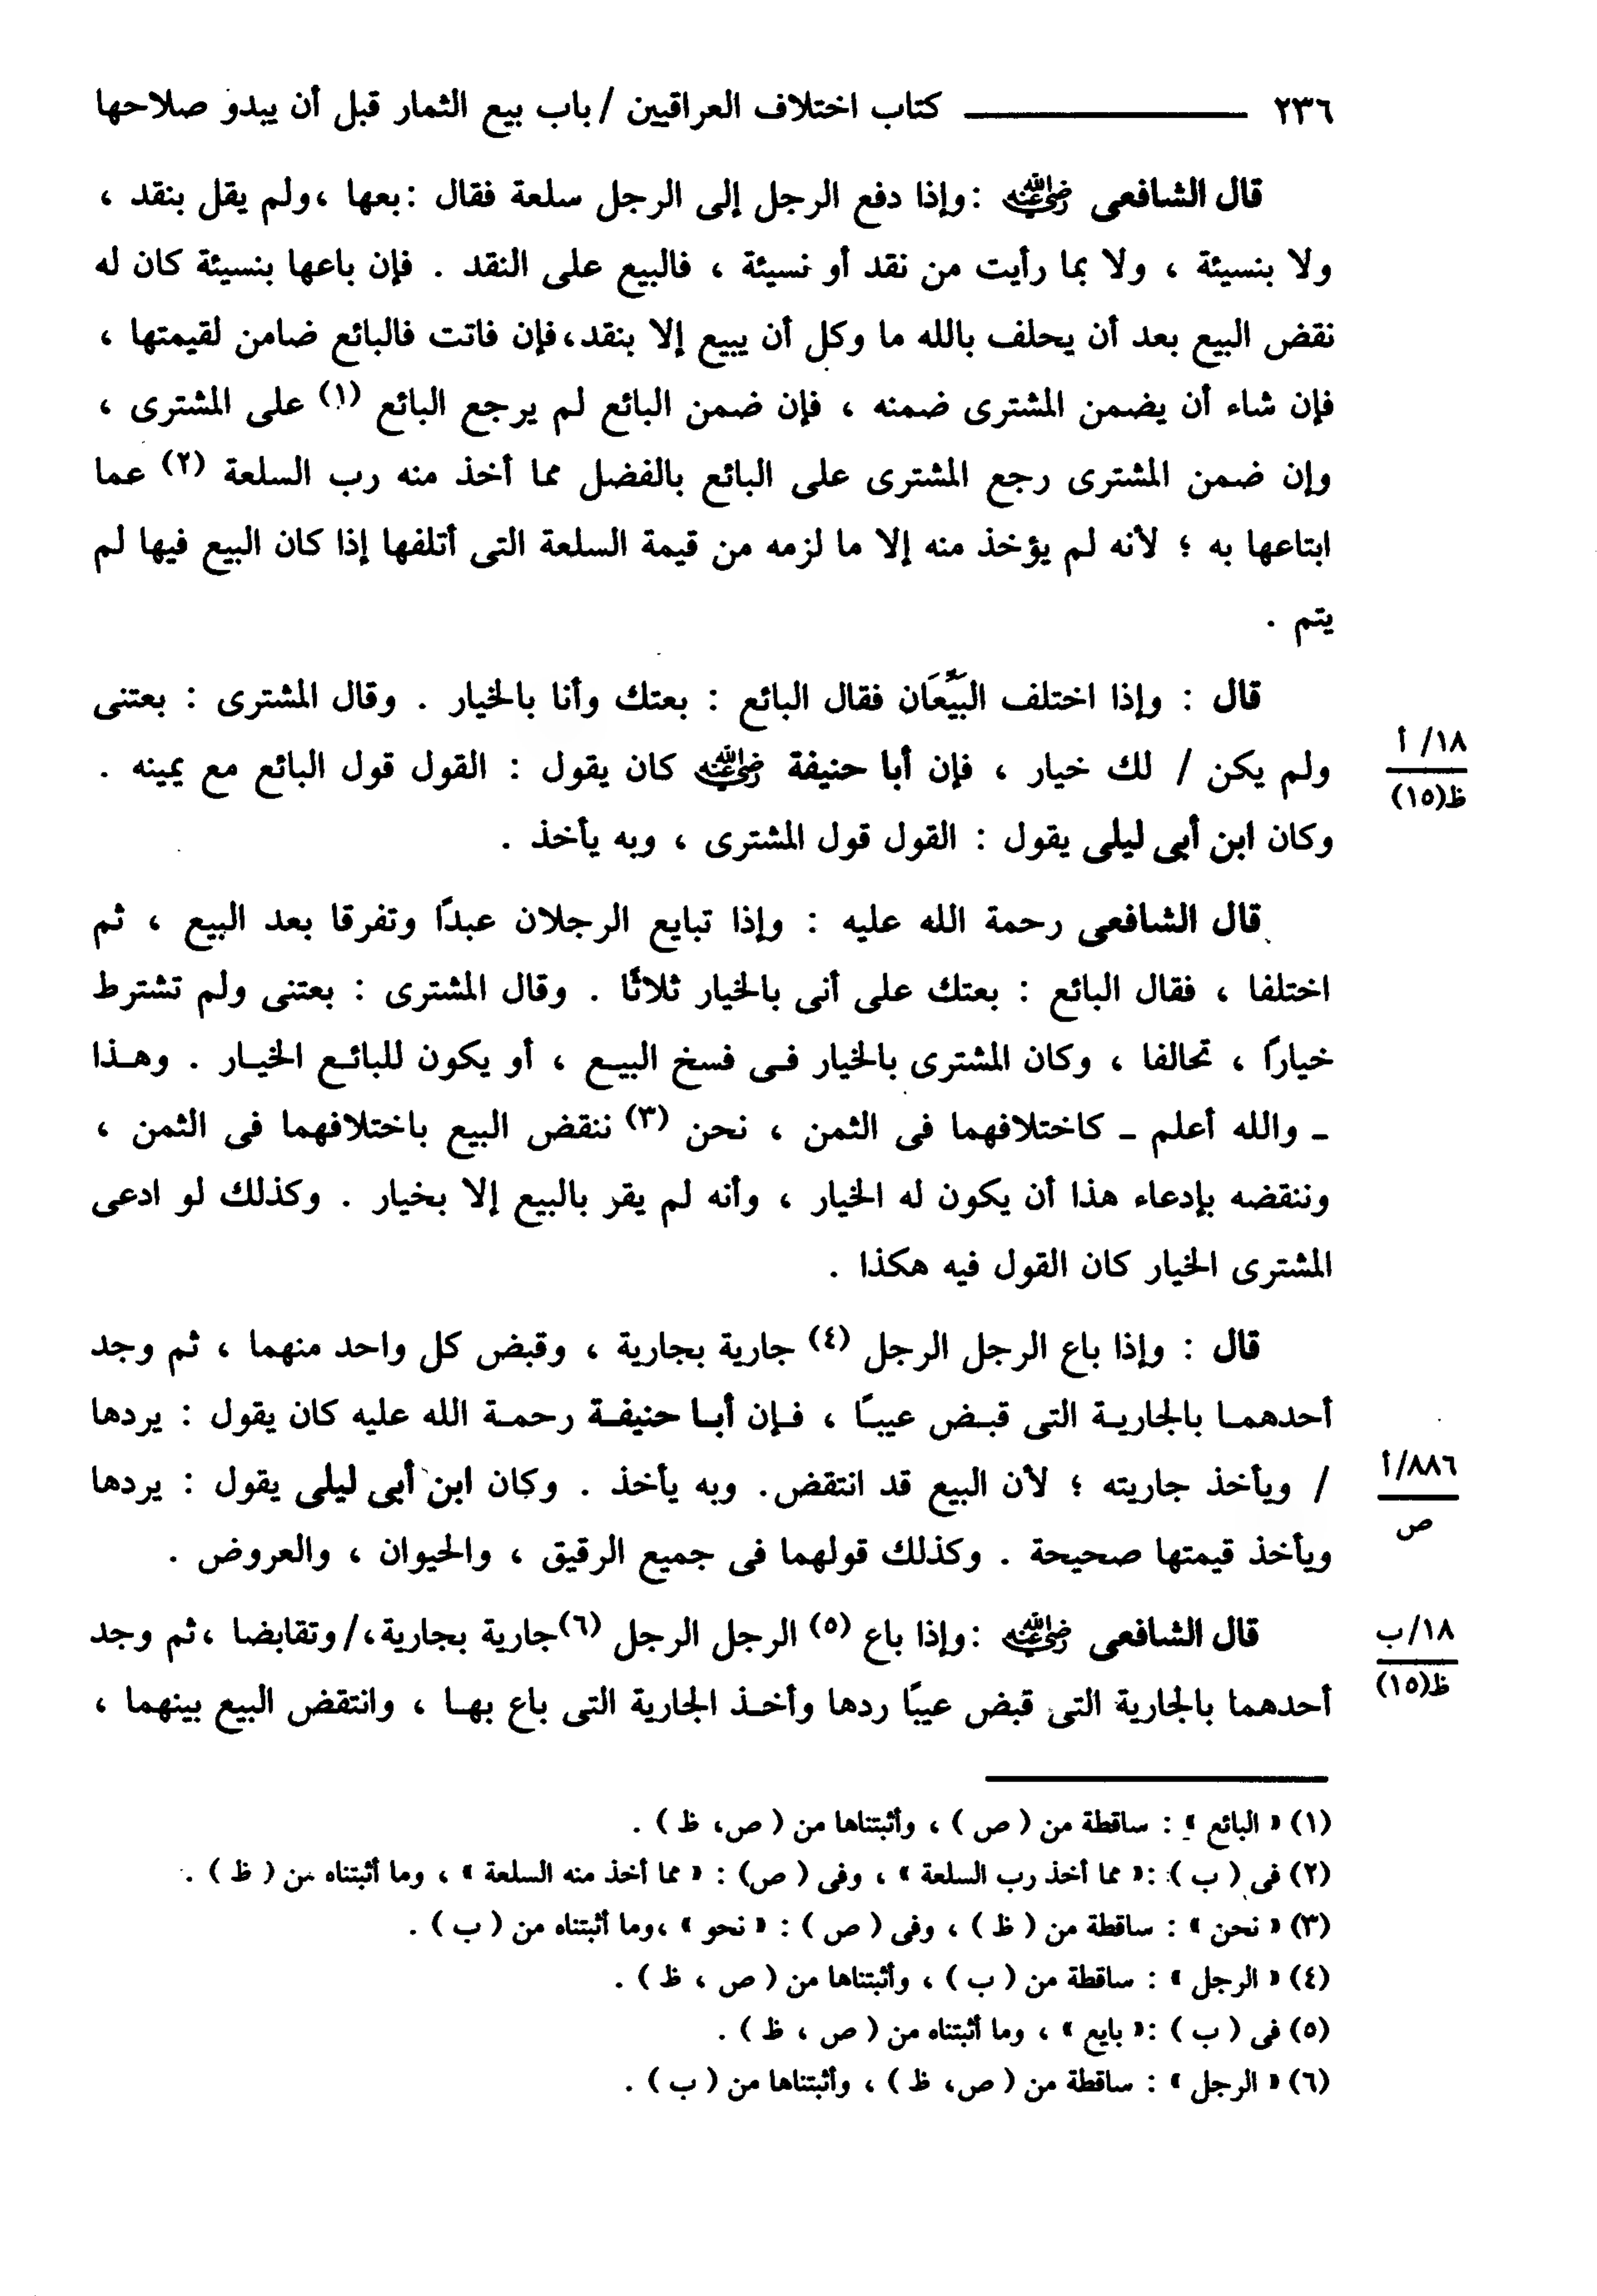 ٢٣٦ كتاب اختلاف العراقيين / باب بيع الثمار قبل أن يبدو صلاحها
قال الشافعى رضي الله عنه : وإذا دفع الرجل إلى الرجل سلعة فقال : بعها ، ولم يقل بنقد ،
ولا بنسيئة ، ولا بما رأيت من نقد أو نسيئة ، فالبيع على النقد . فإن باعها بنسيئة كان له
نقض البيع بعد أن يحلف بالله ما وكل أن يبيع إلا بنقد، فإن فاتت فالبائع ضامن لقيمتها ،
فإن شاء أن يضمن المشترى ضمنه ، فإن ضمن البائع لم يرجع البائع (١) على المشترى ،
وإن ضمن المشترى رجع المشترى على البائع بالفضل مما أخذ منه رب السلعة (٢) عما
ابتاعها به ؛ لأنه لم يؤخذ منه إلا ما لزمه من قيمة السلعة التى أتلفها إذا كان البيع فيها لم
يتم .
قال : وإذا اختلف البيِّعَان فقال البائع : بعتك وأنا بالخيار . وقال المشترى : بعتنى
١٨/ أ
ولم يكن / لك خيار ، فإن أبا حنيفة رضي الله عنه كان يقول : القول قول البائع مع يمينه .
ظ(١٥)
وكان ابن أبى ليلى يقول : القول قول المشترى ، وبه يأخذ .
قال الشافعى رحمة الله عليه : وإذا تبايع الرجلان عبدًا وتفرقا بعد البيع ، ثم
اختلفا ، فقال البائع : بعتك على أنى بالخيار ثلاثًا . وقال المشترى : بعتنى ولم تشترط
خيارًا ، تحالفا ، وكان المشترى بالخيار فى فسخ البيع ، أو يكون للبائع الخيار . وهذا
ـ والله أعلم ـ كاختلافهما فى الثمن ، نحن (٣) ننقض البيع باختلافهما فى الثمن ،
وننقضه بإدعاء هذا أن يكون له الخيار ، وأنه لم يقر بالبيع إلا بخيار . وكذلك لو ادعى
المشترى الخيار كان القول فيه هكذا .
قال : وإذا باع الرجل الرجل (٤) جارية بجارية ، وقبض كل واحد منهما ، ثم وجد
أحدهما بالجارية التى قبض عيبًا ، فإن أبا حنيفة رحمة الله عليه كان يقول : يردها
٨٨٦/أ
/ ويأخذ جاريته ؛ لأن البيع قد انتقض. وبه يأخذ . وكان ابن أبى ليلى يقول : يردها
ص
ويأخذ قيمتها صحيحة . وكذلك قولهما فى جميع الرقيق ، والحيوان ، والعروض .
١٨/ب
قال الشافعى رضي الله عنه : وإذا باع (٥) الرجل الرجل (٦) جارية بجارية،/ وتقابضا ، ثم وجد
ظ(١٥)
أحدهما بالجارية التى قبض عيبًا ردها وأخذ الجارية التى باع بها ، وانتقض البيع بينهما ،
(١) « البائع » : ساقطة من ( ص ) ، وأثبتناها من ( ص، ظ ) .
(٢) فى ( ب ) : « مما أخذ رب السلعة » ، وفى ( ص) : « مما أخذ منه السلعة » ، وما أثبتناه من ( ظ ) .
(٣) « نحن » : ساقطة من ( ظ ) ، وفى ( ص ) : « نحو » ، وما أثبتناه من ( ب ) .
(٤) « الرجل » : ساقطة من ( ب ) ، وأثبتناها من ( ص ، ظ ) .
(٥) فى ( ب ) : « بايع » ، وما أثبتناه من ( ص ، ظ ) .
(٦) « الرجل » : ساقطة من ( ص، ظ ) ، وأثبتناها من ( ب ) .